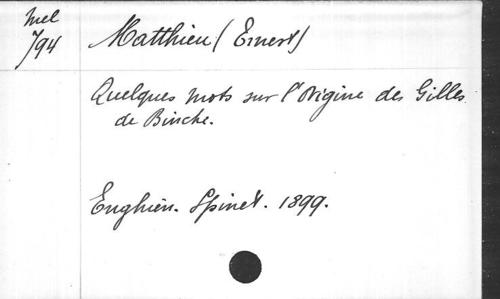 Mel
794
Matthieu (Ernest)
Quelques mots sur l'origine des Gilles
de Binche.
Enghien. Spinet. 1899.